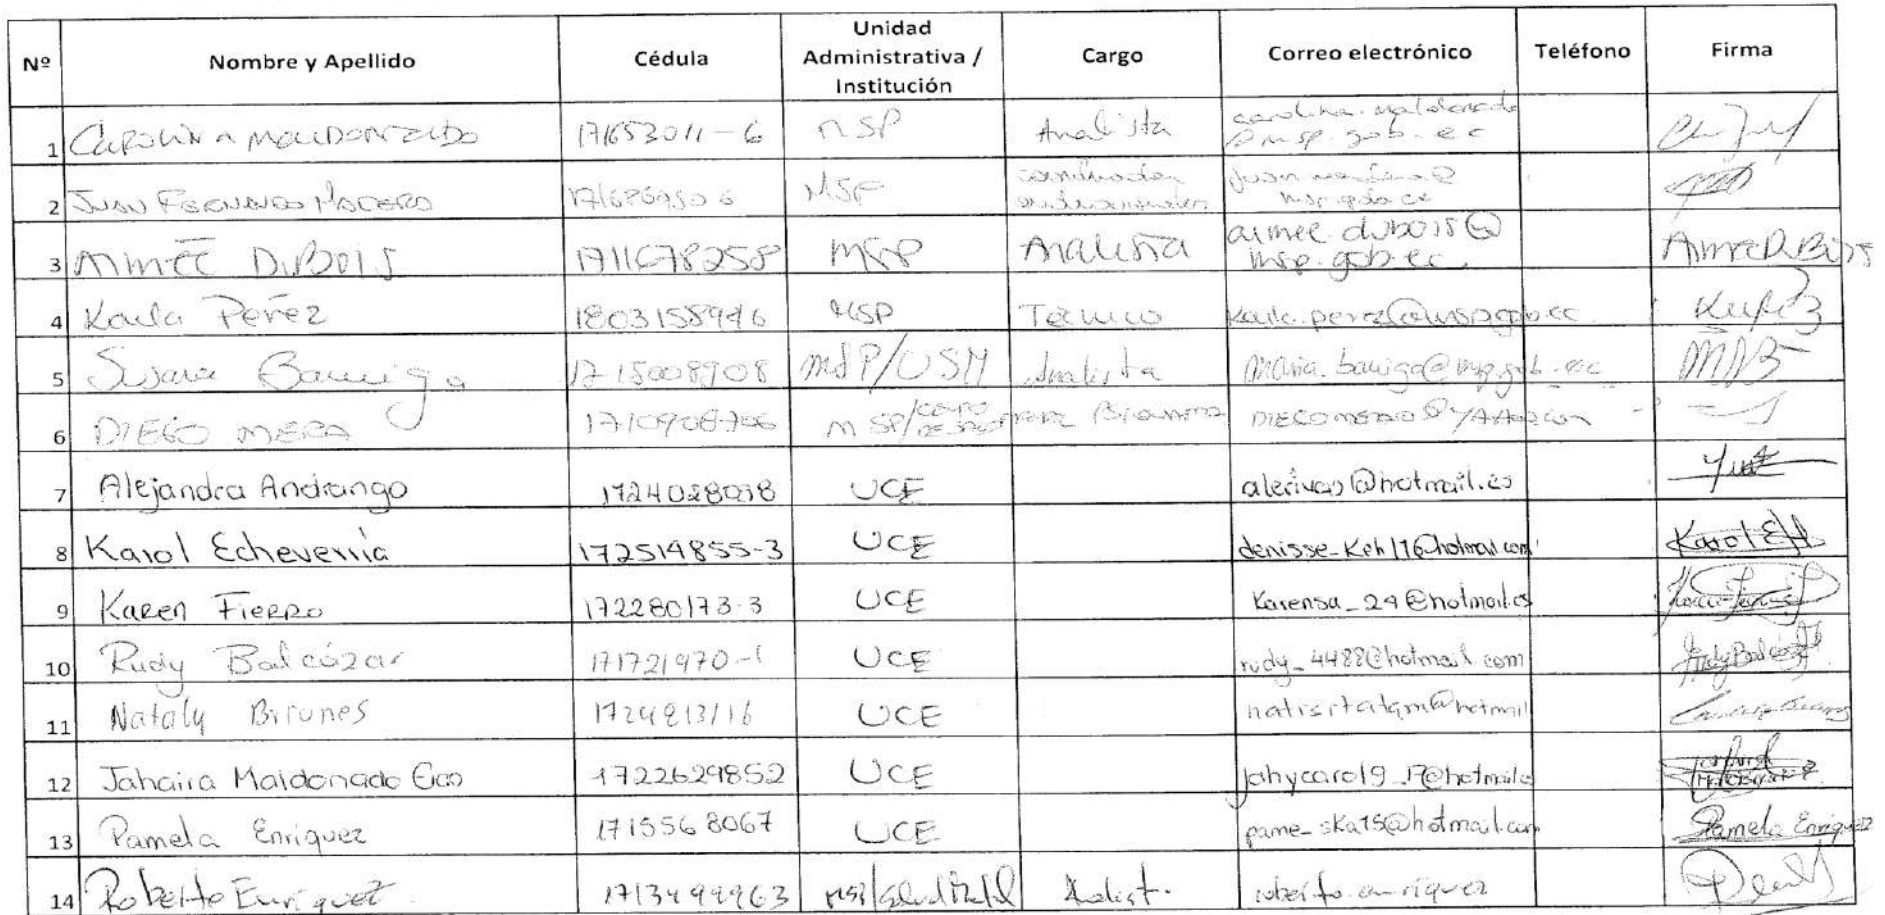 Nº Nombre y Apellido Cédula Unidad Administrativa / Institución Cargo Correo electrónico Teléfono Firma
1 CAROLINA MALDONADO 171653011-6 MSP Analista carolina.maldonado@msp.gob.ec
2 JUAN FERNANDO MSP
3 Aimeé DuBois 1711678258 MSP Analista aimee.dubois@msp.gob.ec AimeeDuBois
4 Karla Pérez 1803158946 MSP Técnico karla.perez@msp.gob.ec
5 Susana Barriga 1715008908 MSP/USM Analista maria.barriga@msp.gob.ec
6 DIEGO MERA 1710908706 MSP/
7 Alejandra Andrango 1724028038 UCE alerivas@hotmail.es
8 Karol Echeverría 172514855-3 UCE denisse_Keh176@hotmail.com Karol EH
9 Karen Fierro 172280173-3 UCE Karensa_24@hotmail.es
10 Rudy Balcázar 171721970-1 UCE rudy_4488@hotmail.com Rudy Balcázar
11 Nataly Briones 1724813116 UCE
12 Jahaira Maldonado 1722629852 UCE
13 Pamela Enríquez 1715568067 UCE pame_ska15@hotmail.com Pamela Enríquez
14 Roberto Enríquez 1713499963 MSP/Salud Mental Analist. roberto.enríquez